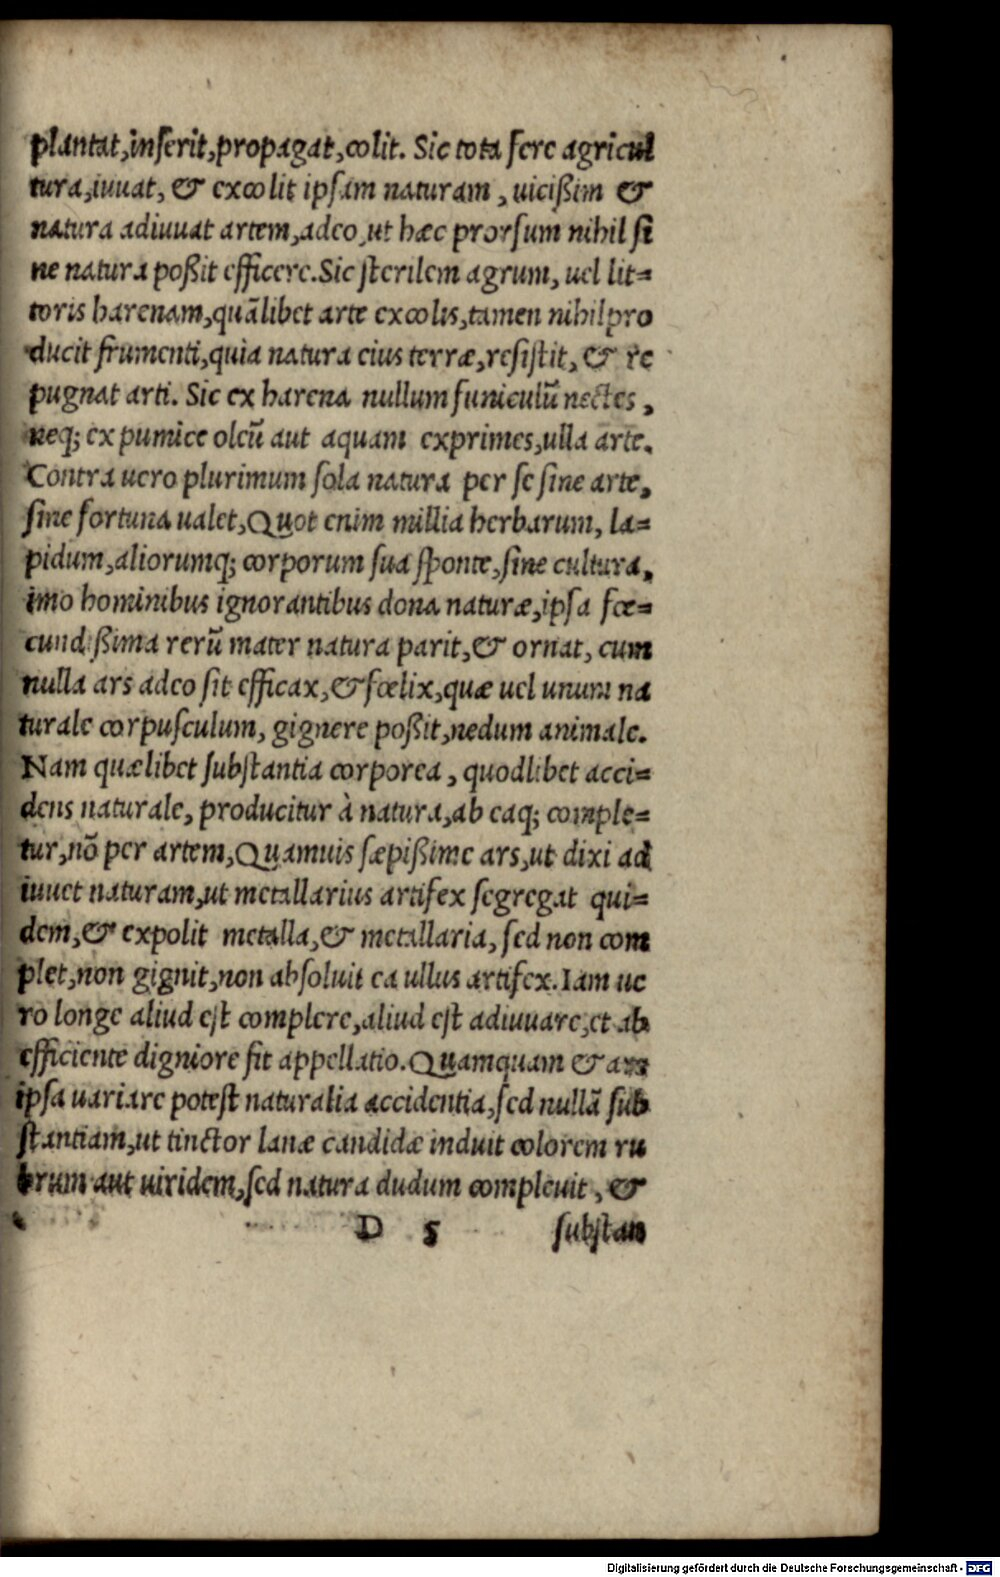 plantat,inſerit,propagat,colit. Sic tota fere agricul
tura,iuuat, & excolit ipſam naturam, uicißim &
natura adiuuat artem,adeo,ut hæc prorſum nihil ſi
ne natura poßit efficere.Sic ſterilem agrum, uel lit=
toris harenam,quālibet arte excolis,tamen nihil pro
ducit frumenti,quia natura eius terræ,reſiſtit, & re
pugnat arti. Sic ex harena nullum funiculū nectes,
neq; ex pumice oleū aut aquam exprimes,ulla arte.
Contra uero plurimum ſola natura per ſe ſine arte,
ſine fortuna ualet,Quot enim millia herbarum, la=
pidum,aliorumq; corporum ſua ſponte,ſine cultura,
imo hominibus ignorantibus dona naturæ,ipſa fœ=
cundißima rerū mater natura parit,& ornat, cum
nulla ars adeo ſit efficax,& fœlix,quæ uel unum na
turale corpuſculum, gignere poßit,nedum animale.
Nam quælibet ſubſtantia corporea, quodlibet acci=
dens naturale, producitur à natura,ab eaq; comple=
tur,nō per artem,Quamuis ſæpißime ars,ut dixi ad
iuuet naturam,ut metallarius artifex ſegregat qui=
dem,& expolit metalla,& metallaria, ſed non com
plet,non gignit,non abſoluit ea ullus artifex.Iam ue
ro longe aliud eſt complere,aliud eſt adiuuare,et ab
efficiente digniore fit appellatio.Quamquam & ars
ipſa uariare poteſt naturalia accidentia,ſed nullā ſub
ſtantiam,ut tinctor lanæ candidæ induit colorem ru
brum aut uiridem,ſed natura dudum compleuit, &
D 5 ſubſtan
Digitalisierung gefördert durch die Deutsche Forschungsgemeinschaft - DFG